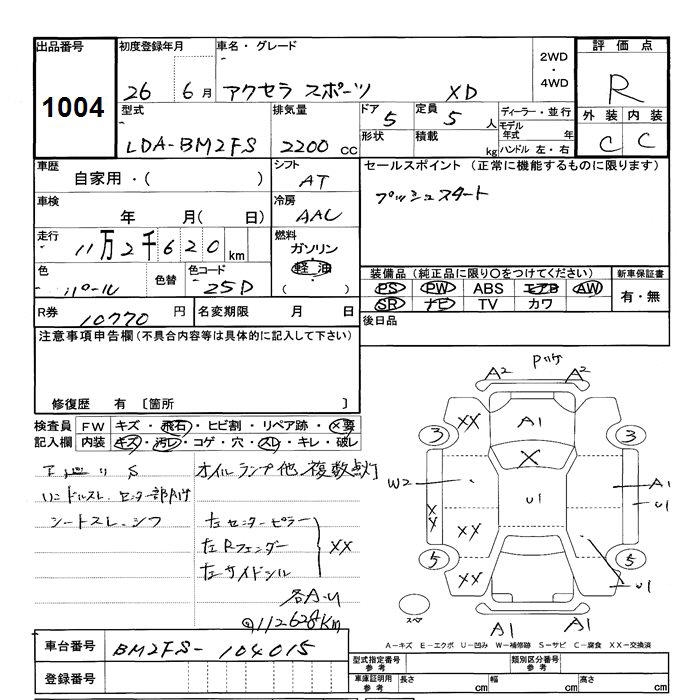 出品番号 初度登録年月 車名・グレード 2WD・4WD 評価点
1004 26 6月 アクセラ スポーツ XD R
型式 排気量 ドア 5 定員 5人 ディーラー・並行 外装 内装
LDA-BM2FS 2200cc 形状 積載 kg モデル年式 年 ハンドル 左・右 C C
車歴 シフト セールスポイント (正常に機能するものに限ります)
自家用・( ) AT プッシュスタート
車検 冷房
年 月( 日) AAC
走行 燃料
11万2千620km ガソリン
軽油
( )
色 色替 色コード 装備品(純正品に限り○をつけてください) 新車保証書
パール 25D PS PW ABS エアB AW 有・無
SR ナビ TV カワ
R券 10770円 名変期限 月 日 後日品
注意事項申告欄(不具合内容等は具体的に記入して下さい)
修復歴 有 〔箇所 〕
検査員 FW キズ・飛石・ヒビ割・リペア跡・×要
記入欄 内装 キズ・汚レ・コゲ・穴・スレ・キレ・破レ
オイルランプ他 複数点灯
シートスレ、シワ
左センターピラー
左Rフェンダー XX
左サイドシル
各A・U
112628Km
A2 A2
XX A1
3 3
X
W2 U1 A1
U1
XX
XX XX
5 5
XX U1
スペア A1 A1
A-キズ E-エクボ U-凹み W-補修跡 S-サビ C-腐食 XX-交換済
車台番号 BM2FS-104015 型式指定番号 参考 類別区分番号 参考
登録番号 車庫証明用 参考 長さ cm 幅 cm 高さ cm